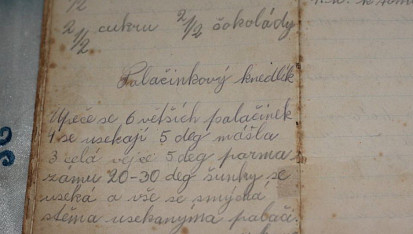 1/2
2 1/2 cukru 2/2 čokolády
Palačinkový knedlík
Upeče se 6 větších palačinek
4 se usekají 5 deg másla
3 celá vejce 5 deg parma
zamu 20-30 deg šunky se
useká a vše se smýchá
stěma usekanýma palači.